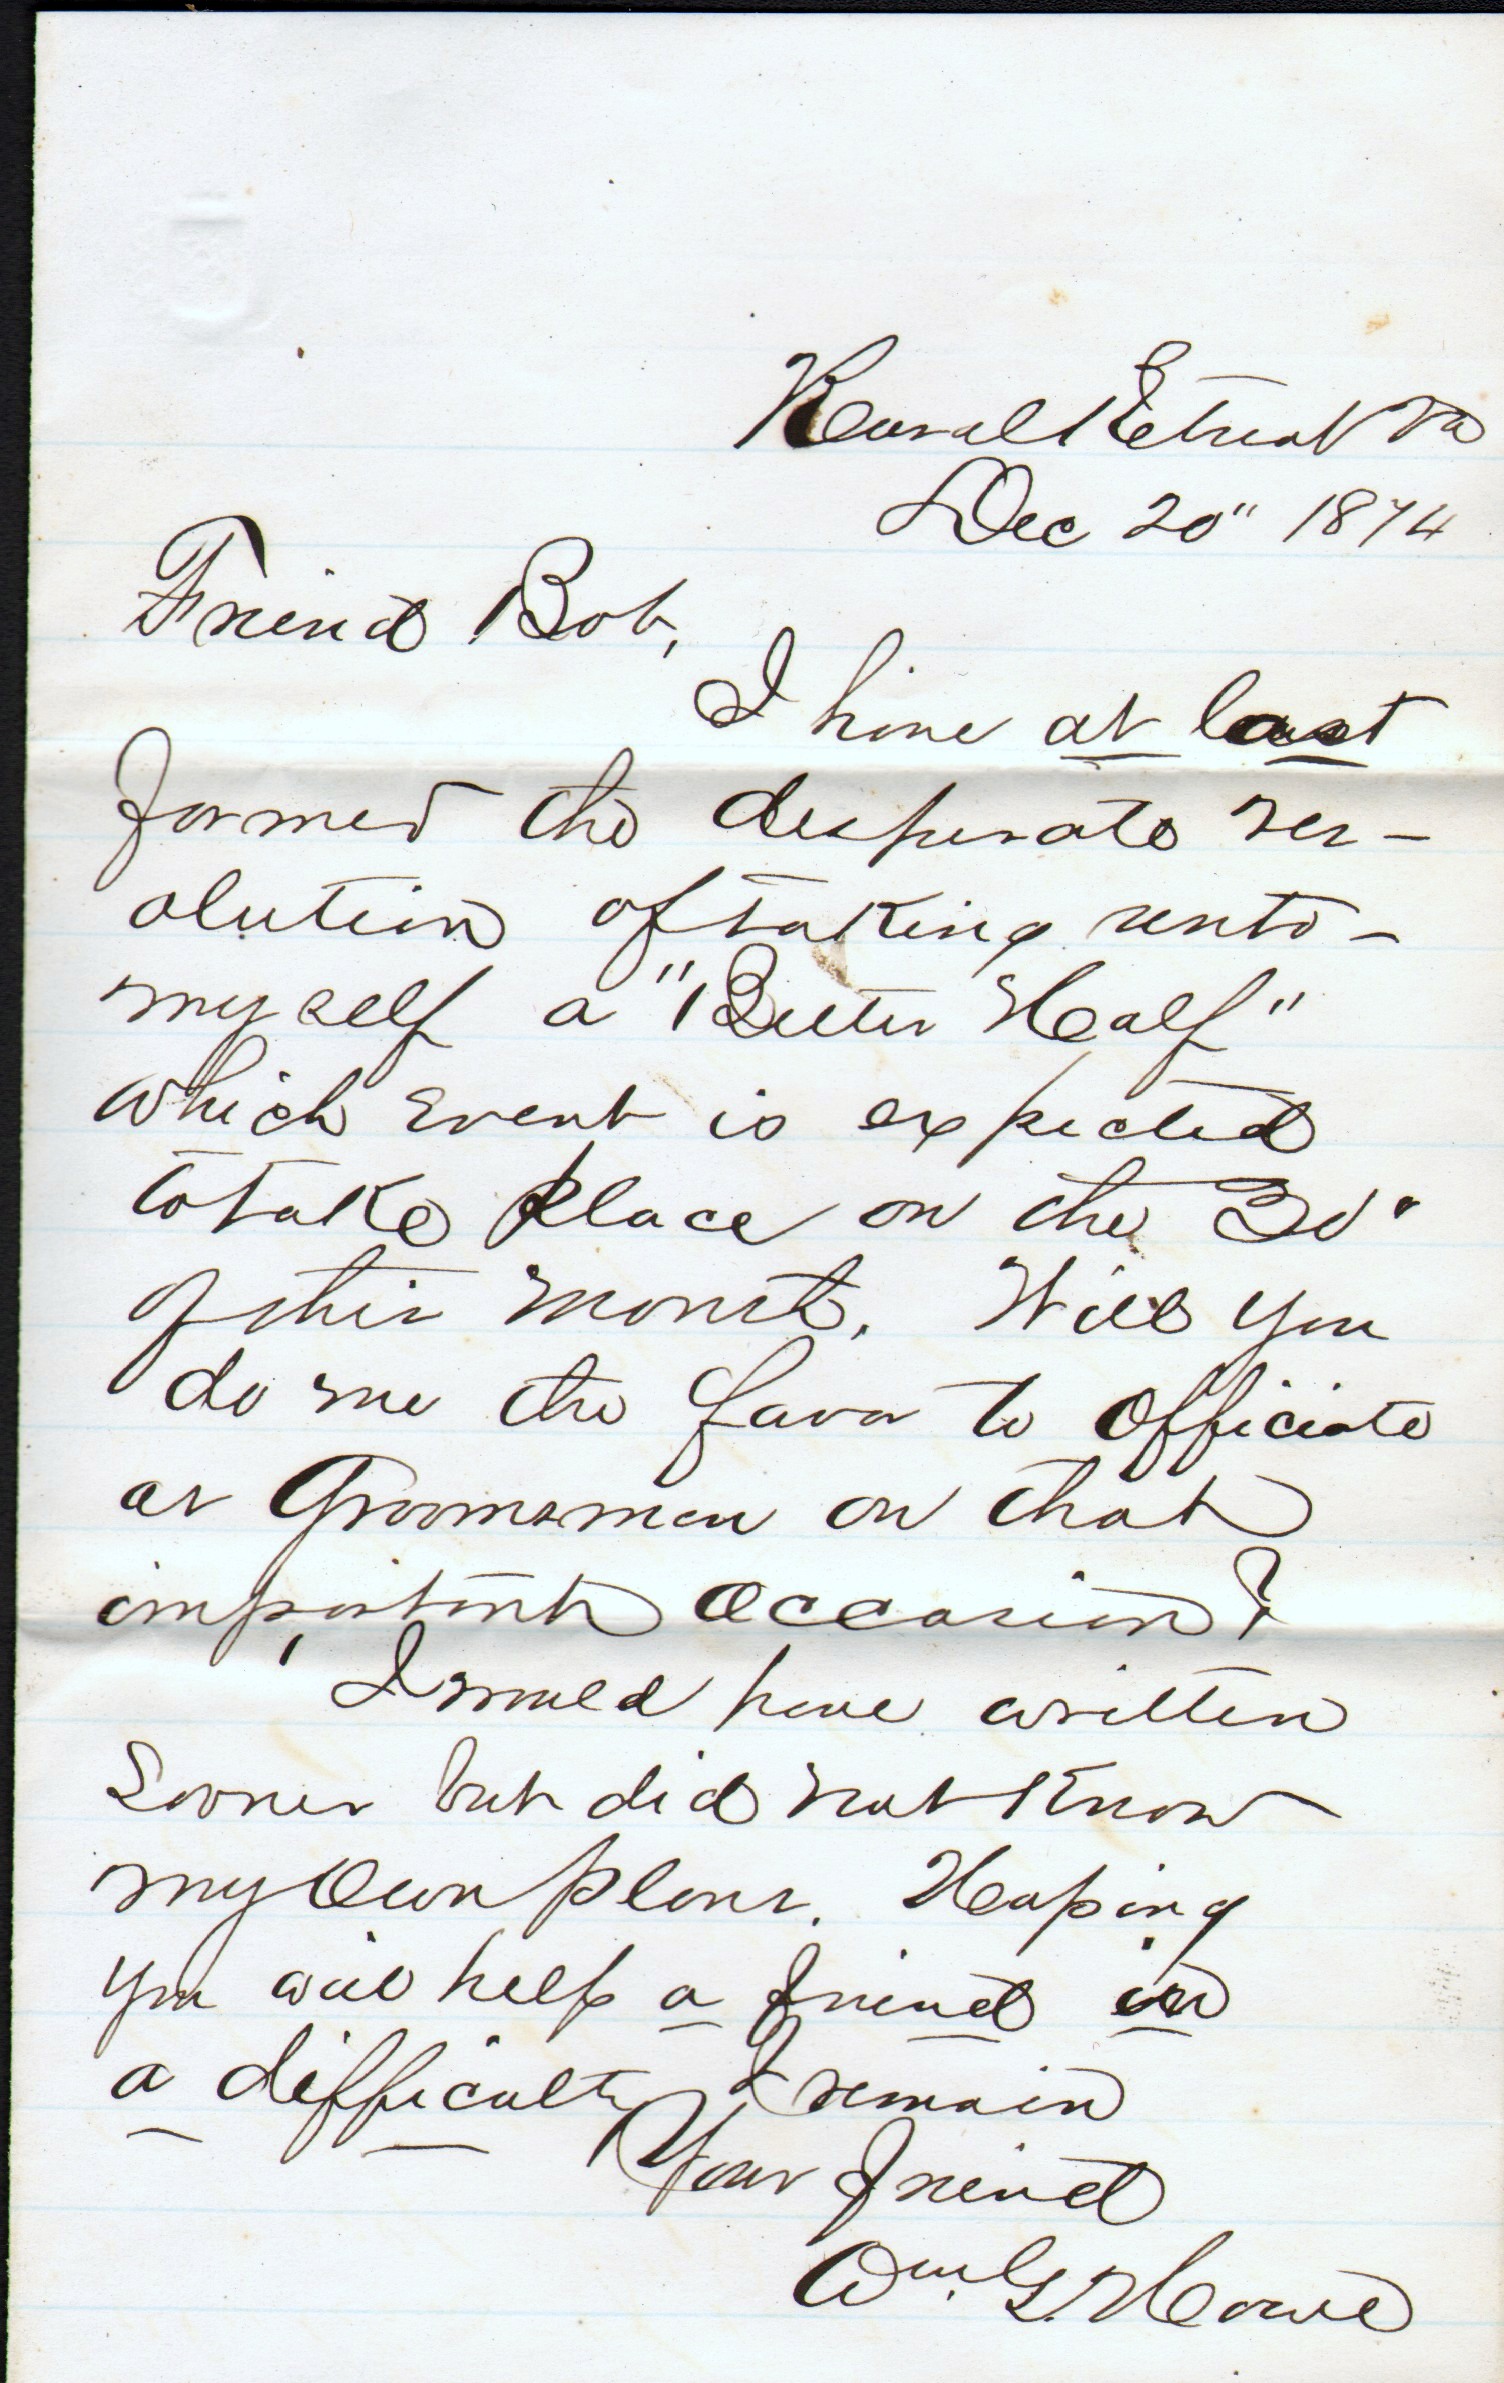 Rural Retreat Va
Dec 20" 1874
Friend Bob,
I have at last
formed the desperate res-
olution of taking unto-
myself a "Better Half"
which event is expected
to take place on the 30"
of this month. Will you
do me the favor to officiate
as Groomsman on that
important occasion?
I would have written
sooner but did not know
my own plans. Hoping
you will help a friend in
a difficulty I remain
Your friend
Wm. G. Howe